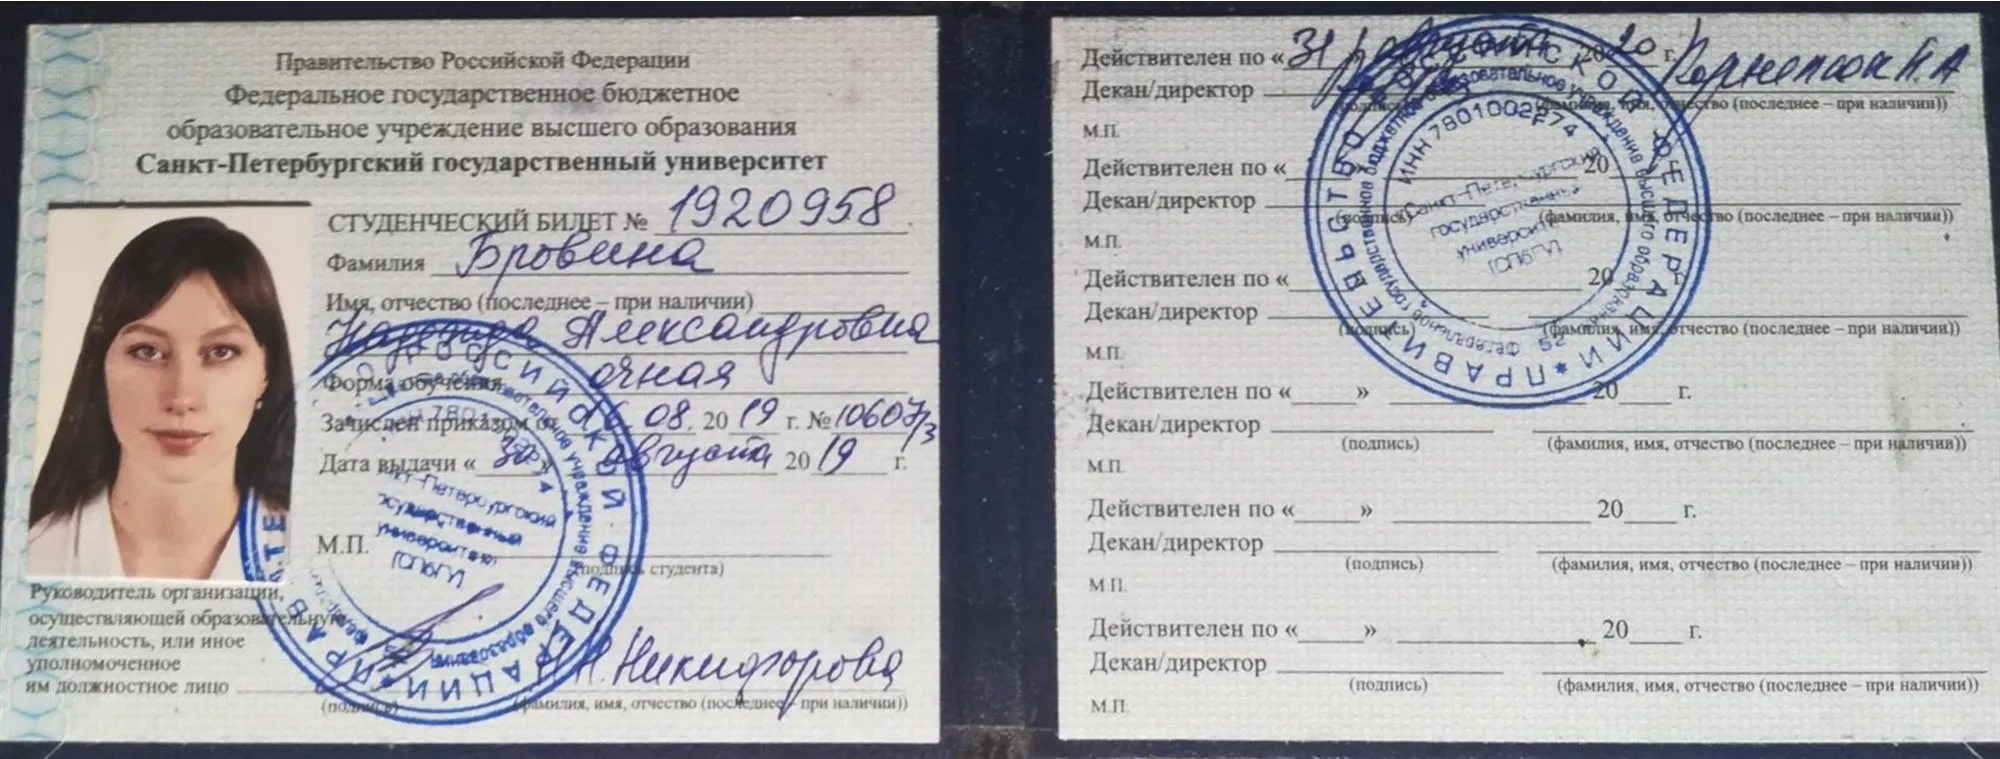 Правительство Российской Федерации
Федеральное государственное бюджетное
образовательное учреждение высшего образования
Санкт-Петербургский государственный университет
СТУДЕНЧЕСКИЙ БИЛЕТ № 1920958
Фамилия Бровина
Имя, отчество (последнее – при наличии)
Надежда Александровна
Форма обучения очная
Зачислен приказом от 16.08.2019 г. № 10607/3
Дата выдачи «30» августа 2019 г.
М.П.
(подпись студента)
Руководитель организации,
осуществляющей образовательную
деятельность, или иное
уполномоченное
им должностное лицо Никифорова
(подпись) (фамилия, имя, отчество (последнее – при наличии))
Действителен по «31» августа 2020 г.
Декан/директор
(подпись) (фамилия, имя, отчество (последнее – при наличии))
М.П.
Действителен по « 20 г.
Декан/директор
(подпись) (фамилия, имя, отчество (последнее – при наличии))
М.П.
Действителен по « 20 г.
Декан/директор
(подпись) (фамилия, имя, отчество (последнее – при наличии))
М.П.
Действителен по « » 20 г.
Декан/директор
(подпись) (фамилия, имя, отчество (последнее – при наличии))
М.П.
Действителен по « » 20 г.
Декан/директор
(подпись) (фамилия, имя, отчество (последнее – при наличии))
М.П.
Действителен по « » 20 г.
Декан/директор
(подпись) (фамилия, имя, отчество (последнее – при наличии))
М.П.
ПРАВИТЕЛЬСТВО РОССИЙСКОЙ ФЕДЕРАЦИИ
ИНН 7801002274
Санкт-Петербургский
государственный
университет
(СПбГУ)